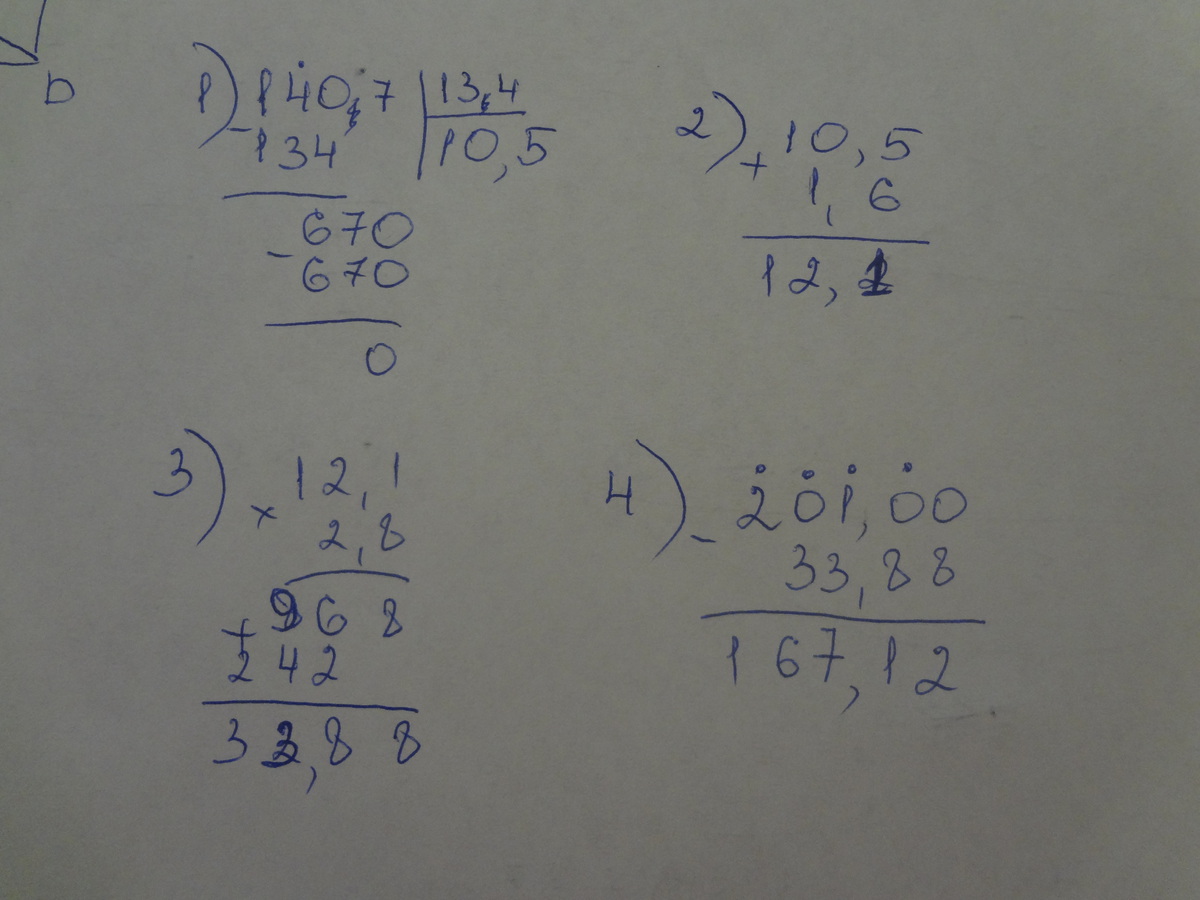 D
1) - 140,7 | 13,4
134 | 10,5
- 670
670
0
2) + 10,5
1,6
12,1
3) × 12,1
2,8
+ 968
242
33,88
4) - 201,00
33,88
167,12